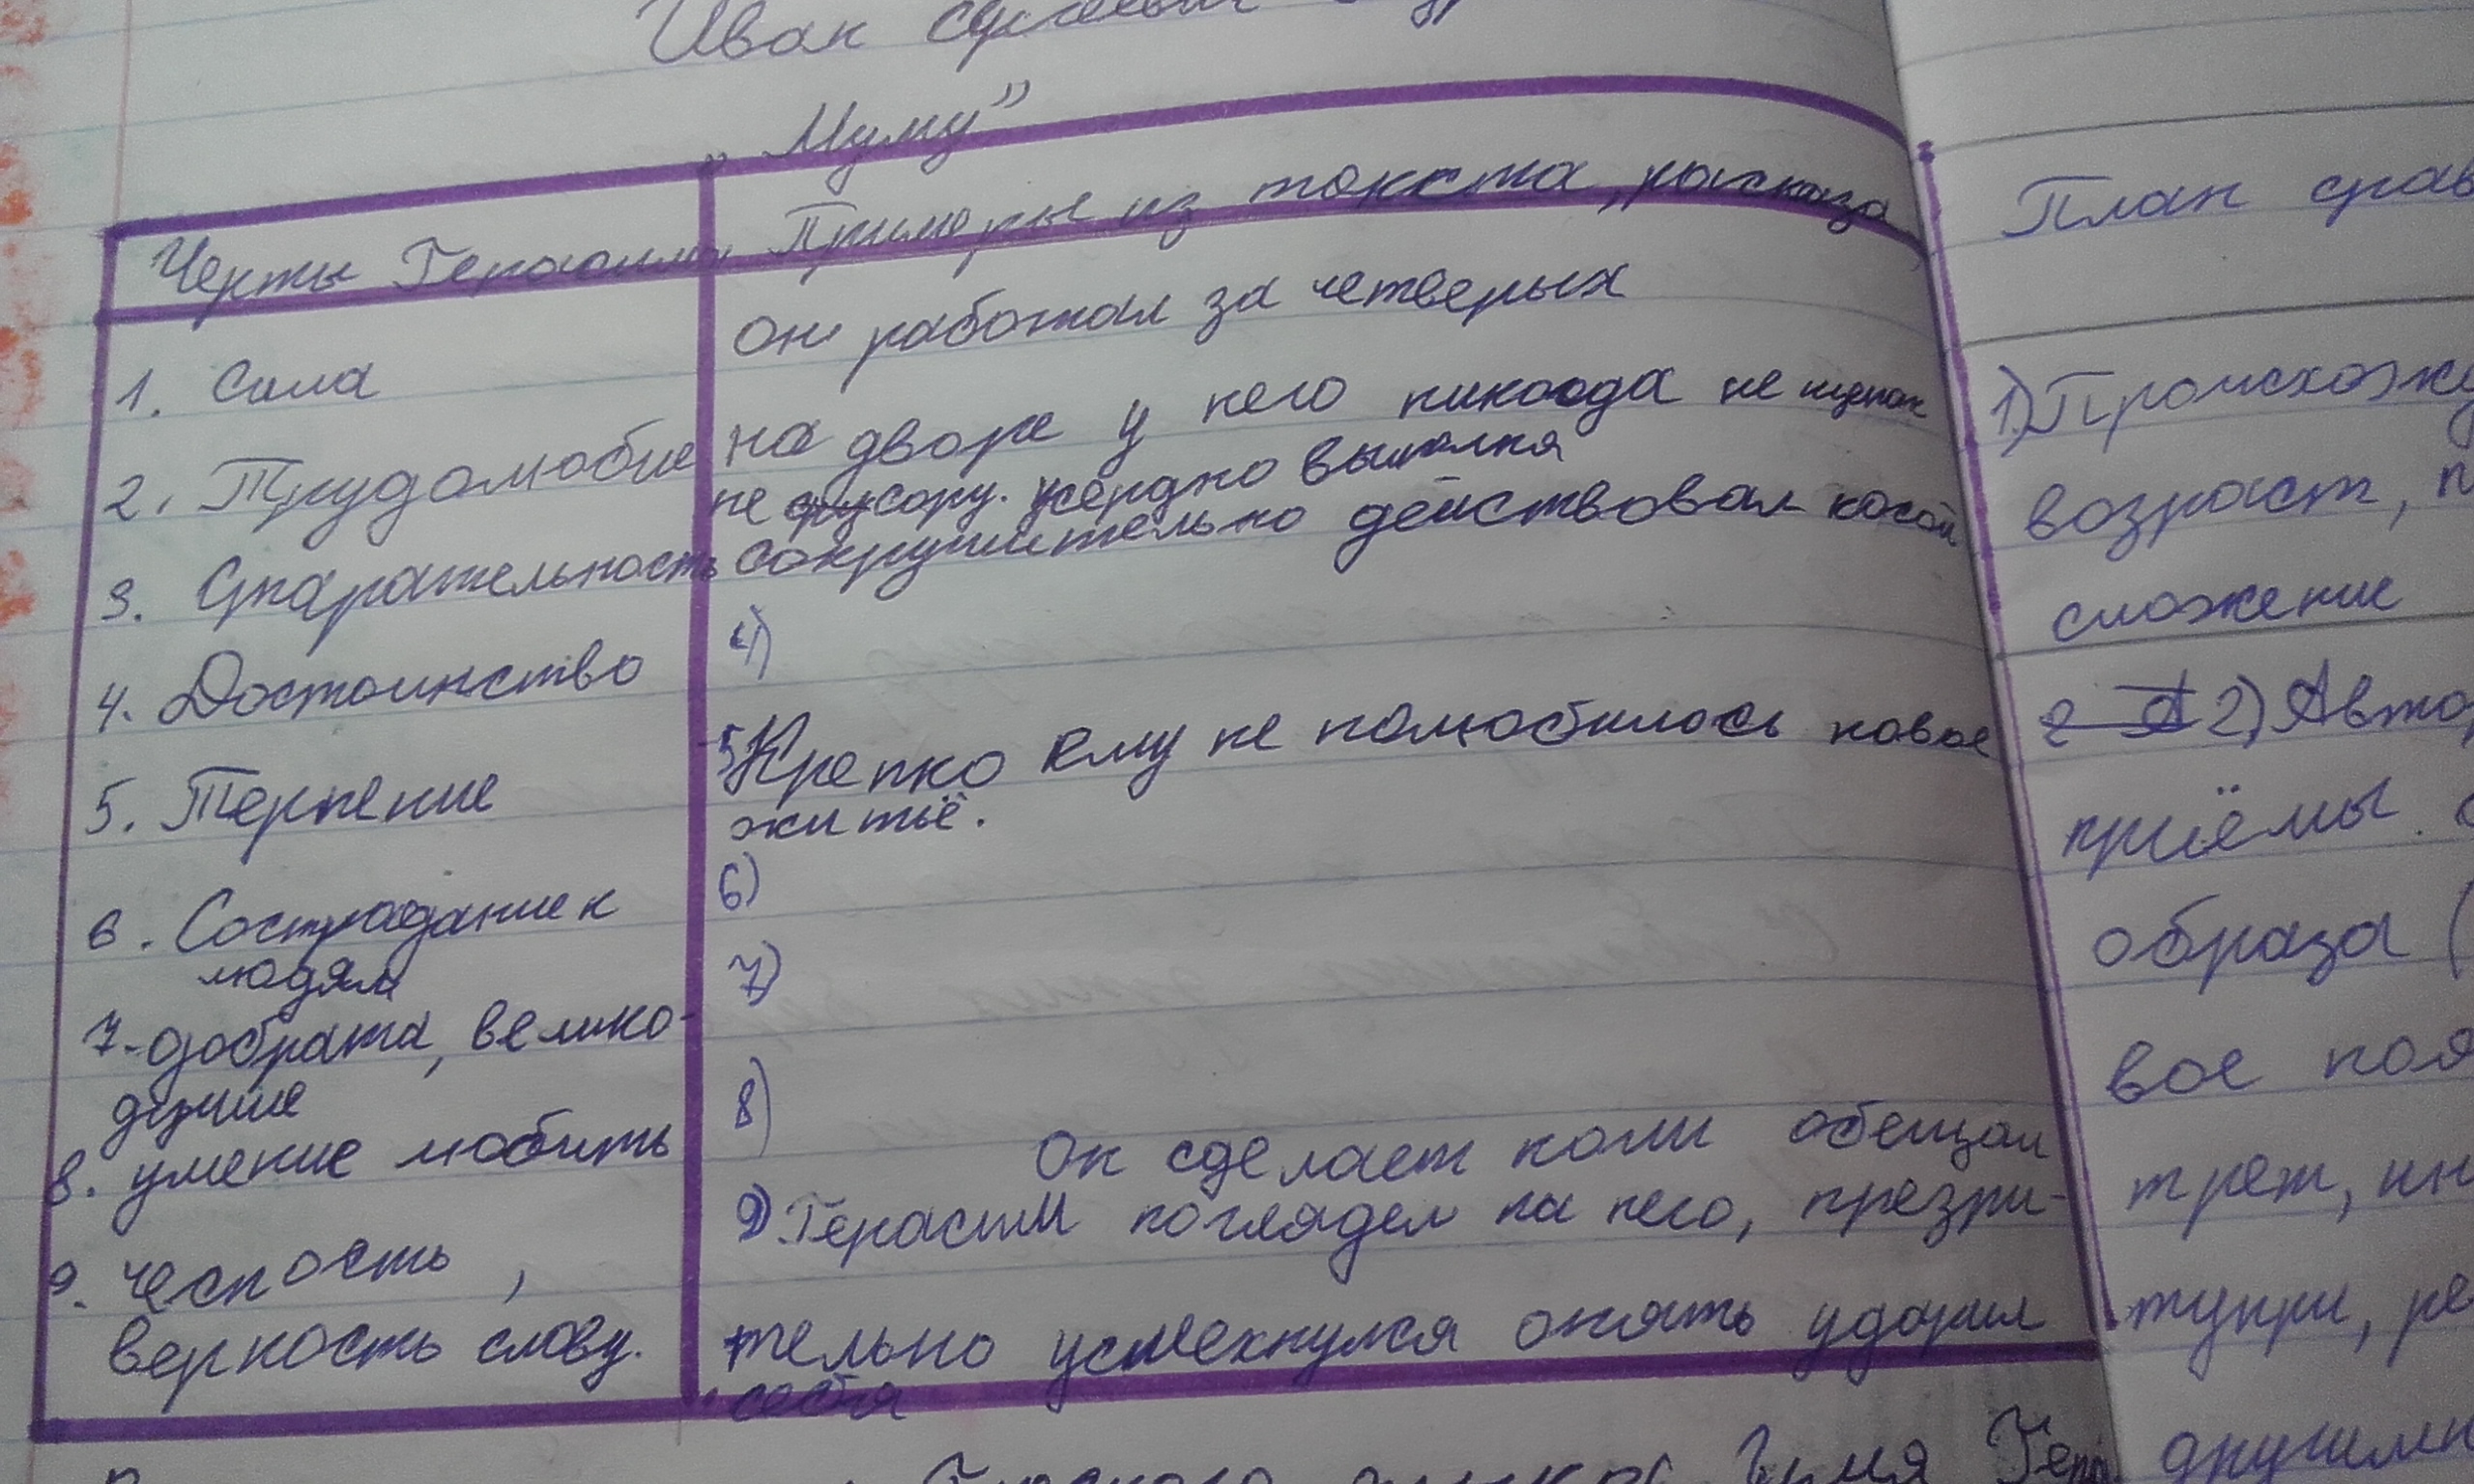 Иван Сергеевич
„Муму”
Черты Герасима
Примеры из текста, рассказа
1. Сила
он работал за четверых
2. Трудолюбие
на дворе у него никогда не щепок
не сору. усердно выполнял
3. Старательность
сокрушительно действовал косой
4. Достоинство
4)
5. Терпение
5 Крепко ему не полюбилось новое
житьё.
6. Сострадание к
людям
6)
7. добрата, велико-
душие
7)
8. умение любить
8)
9. чесность,
верность слову.
Он сделает коли обещал
9) Герасим поглядел на него, презри-
тельно усмехнулся опять ударил
себя
План срав
1) Происхожд
возраст, п
сложение
2) Автор
приёмы
образа (
вое поя
трет, ин
тупри, ре
другими